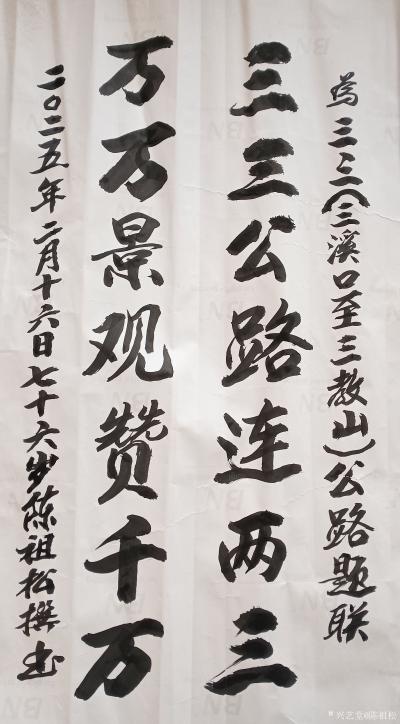 為三三(三溪口至三教山)公路题联
三三公路连两三
万万景观赞千万
二〇二五年二月十六日七十六岁陈祖松撰书
兴艺堂@陈祖松